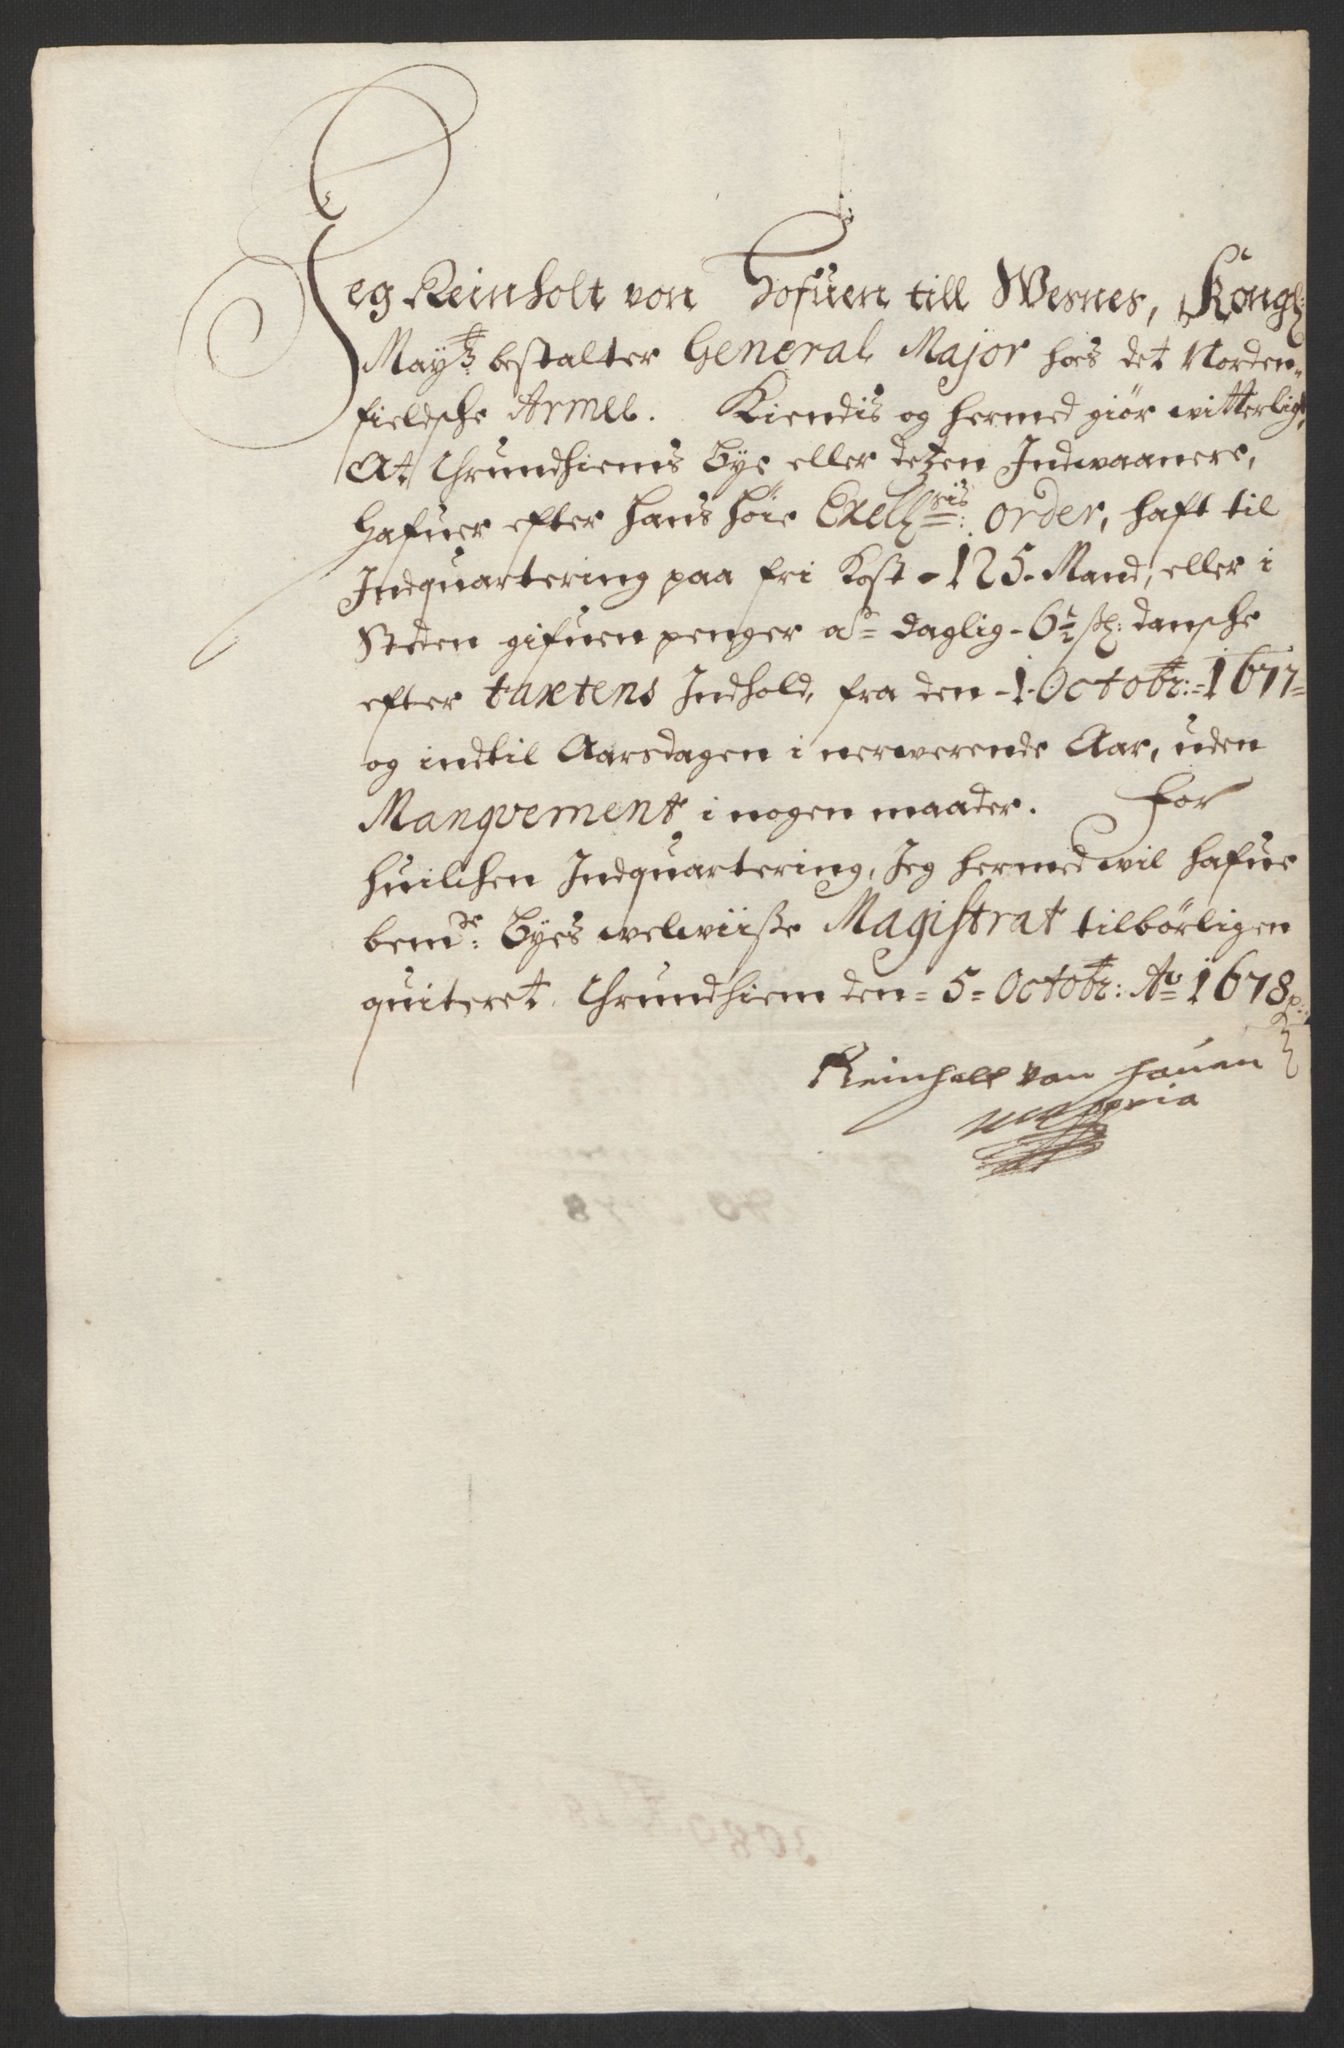 Jeg Reinholt von Hofuen till Wesnes, Kongl:
Maytz bestalter General Major hoes det Norden=
fieldsche Armee. Kiendis og hermed giör witterligt,
At Thrundhiems Bye eller detzen Indwaanere,
Hafuer efter hans höie Excell:ens order, haft til
Indquartering paa fri Kost - 125 - Mand, eller i
Steden gifuen penger a daglig - 6½ sk: dansche
efter taxtens Indhold, fra den - 1. Octobr: = 1677 =
og indtil Aarsdagen i nerwerende Aar, uden
Manqvement i nogen maader. For
huilchen Indquartering, Jeg hermed wil hafue
bemte: Byes welwiisse Magistrat tilbörligen
quiteret. Thrundhiem den = 5 = Octobr: Ao 1678
Reinholt von Houen
mppria